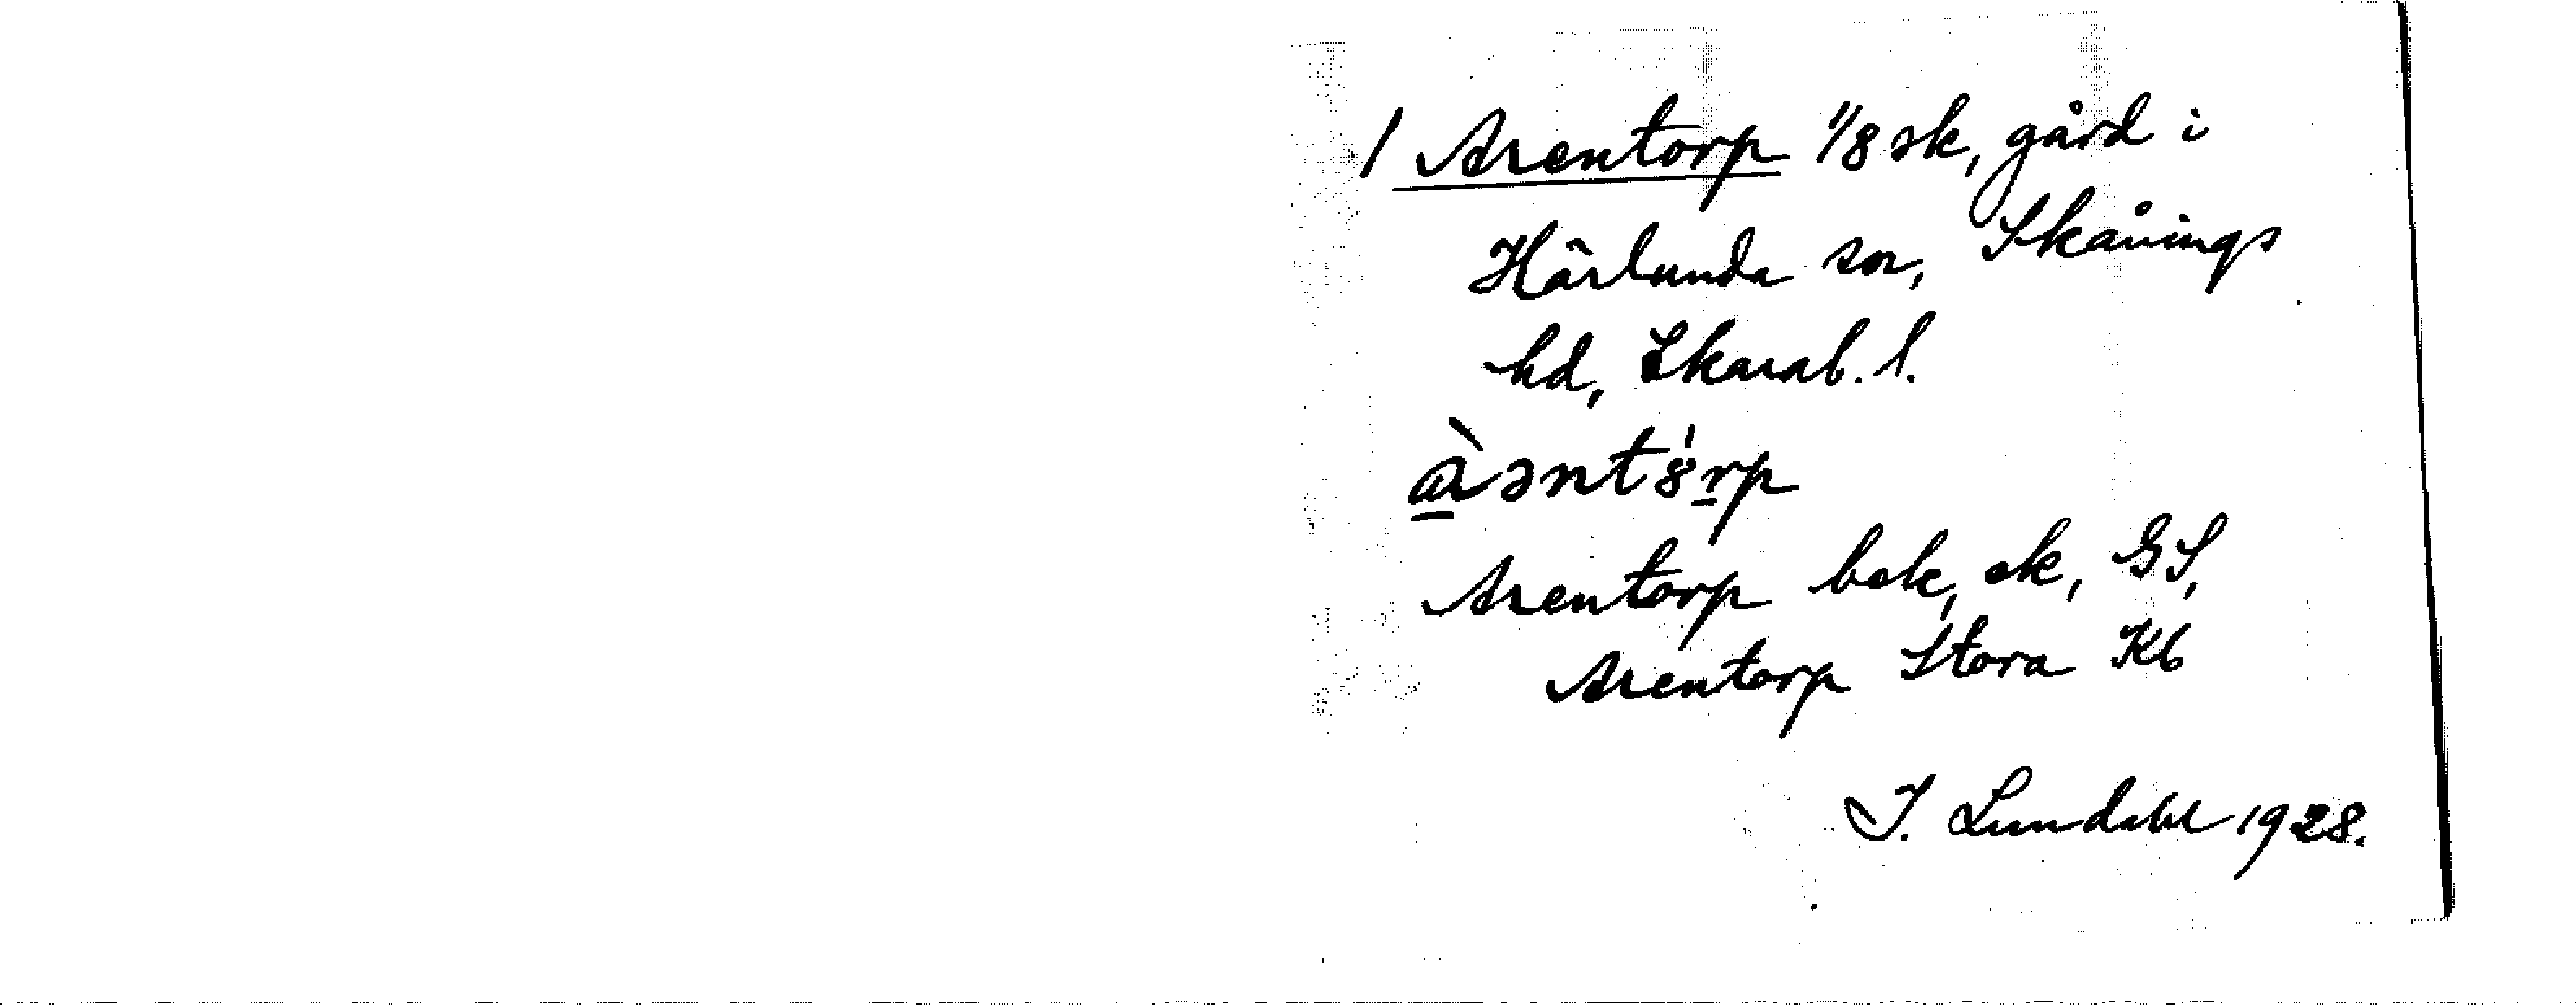 / Arentorp 1/8 sk, gård i
Härlunda sn, Skånings
hd, Skarab. l.
à̱ənt8̍ṟp
Arentorp bok, ek, GS,
Arentorp Stora Kb
I. Lundahl 1928.